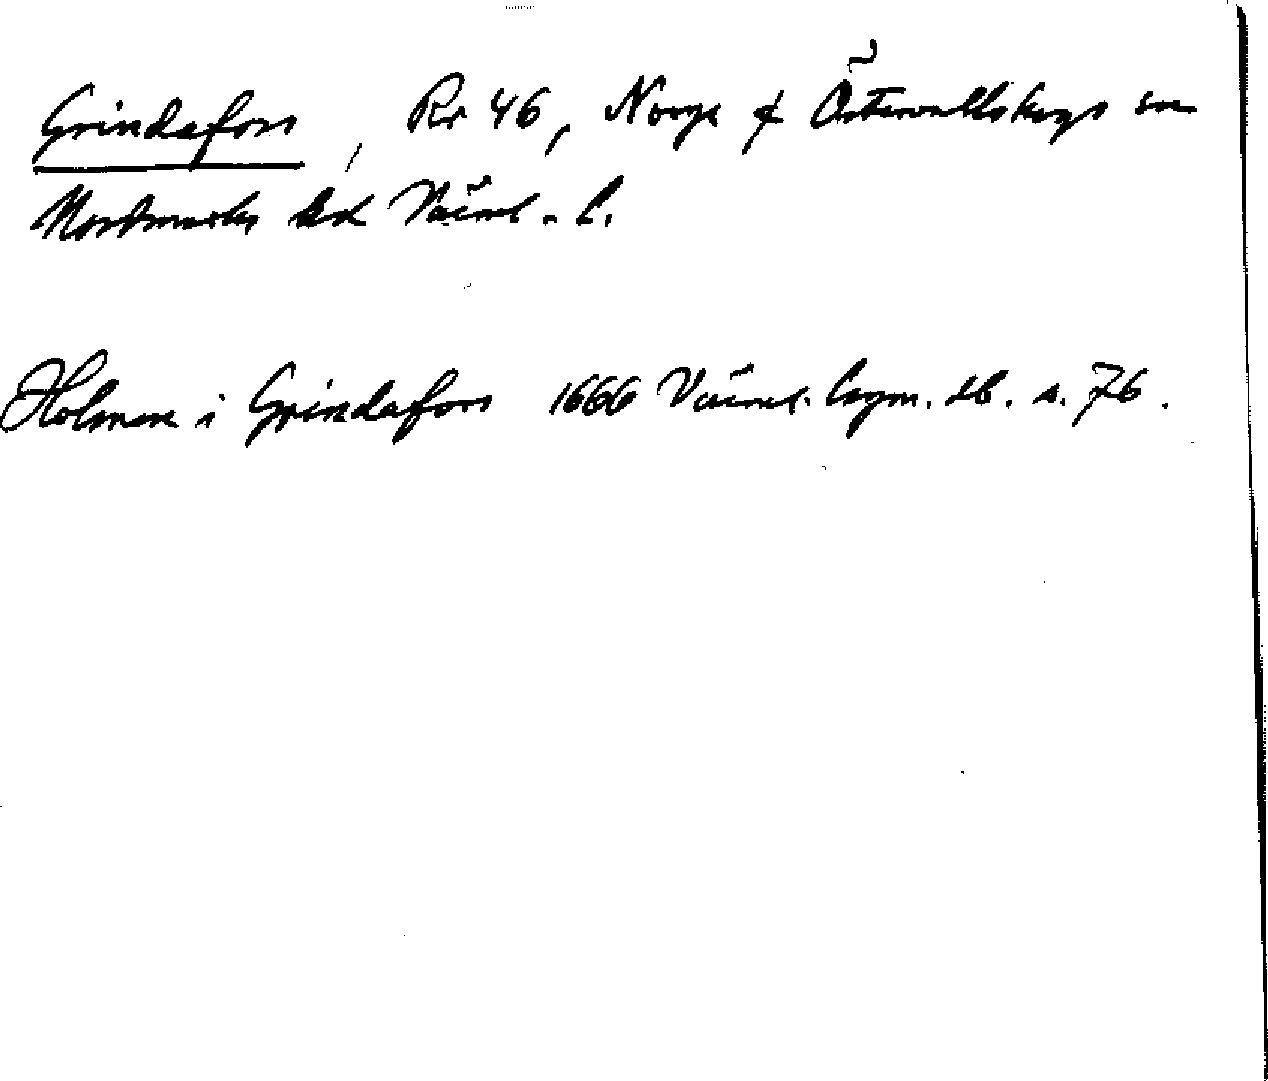 Grindafors, Rr 46, Norge & Östervallskogs sn
Nordmarks hd Värml. l.
Holmen i Grindafors 1666 Värml. lsym. db. s. 76.